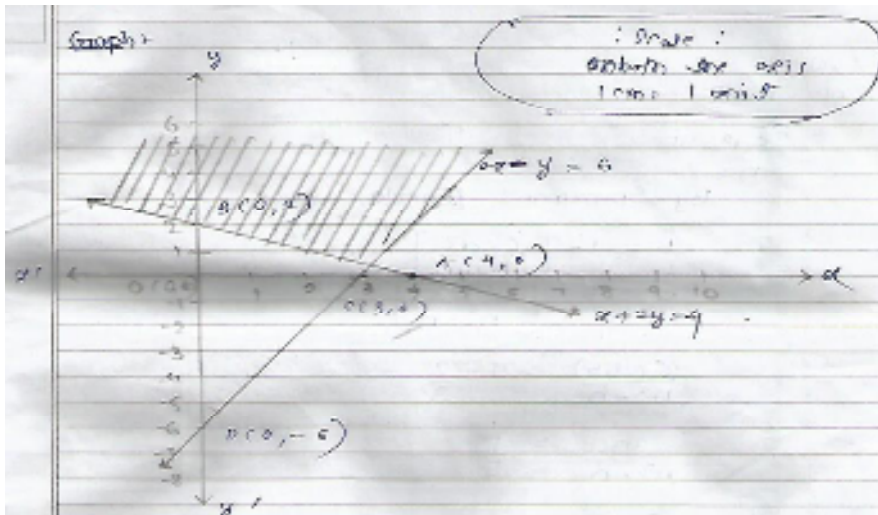 Graph:
: Scale :
on both the axis
1 cm = 1 unit
y
6
5
4
3
2
1
2x - y = 6
B(0,2)
A(4,0)
x'
x
0(0,0)
1
2
4
5
6
7
8
9
10
C(3,0)
x+2y=4
-1
-2
-3
-4
-5
-6
D(0,-6)
-7
-8
y'